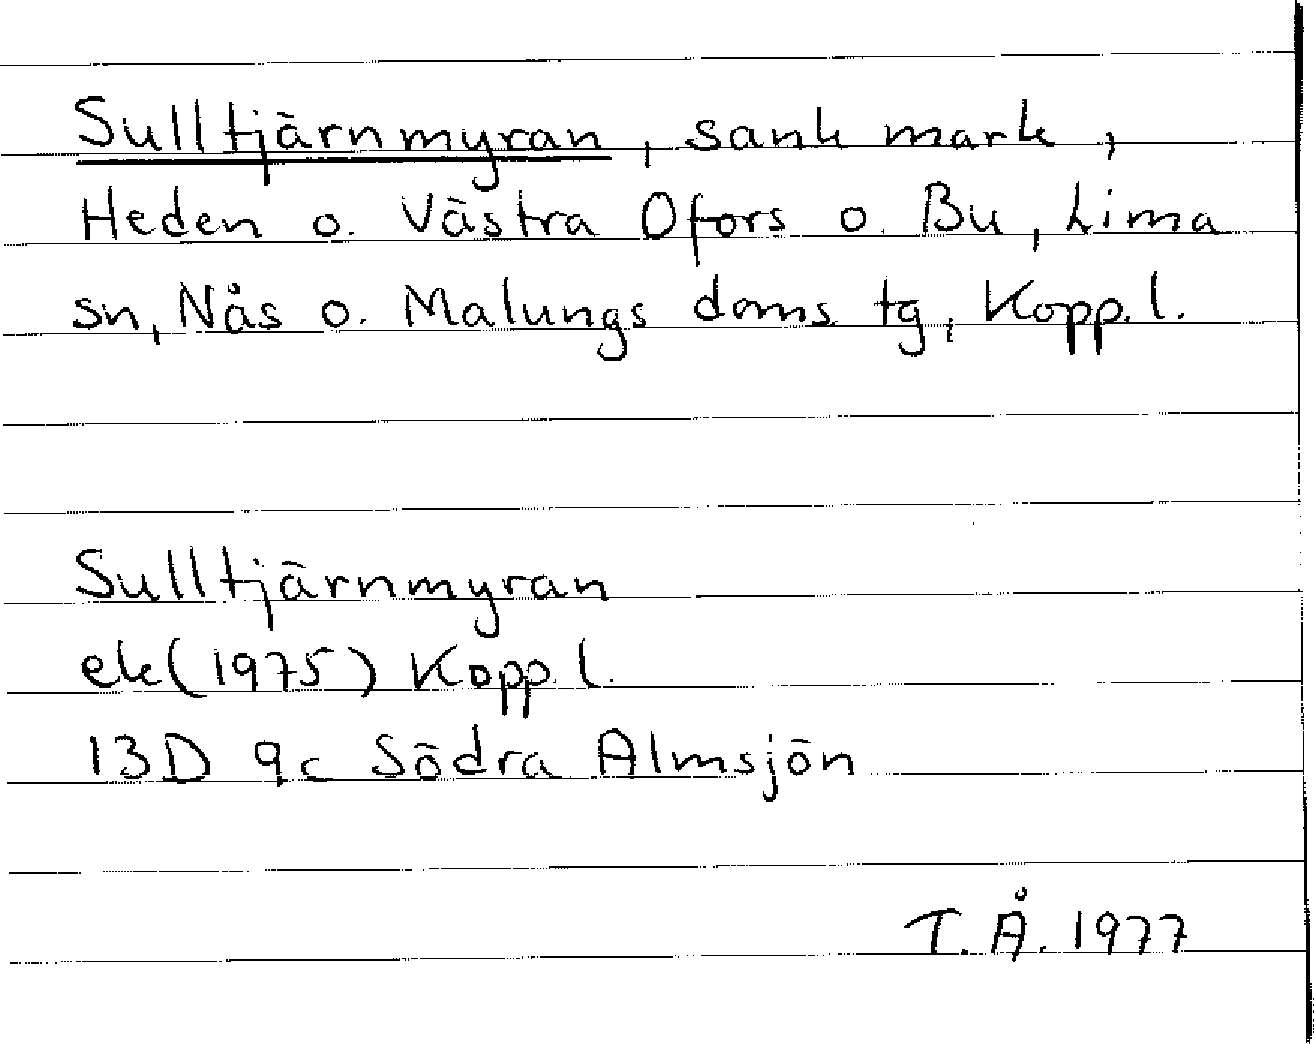 Sulltjärnmyran, sank mark,
Heden o. Västra Ofors o. Bu, Lima
sn, Nås o. Malungs doms. tg, Kopp. l.
Sulltjärnmyran
ek (1975) Kopp l.
13D 9c Södra Almsjön
T.Å. 1977